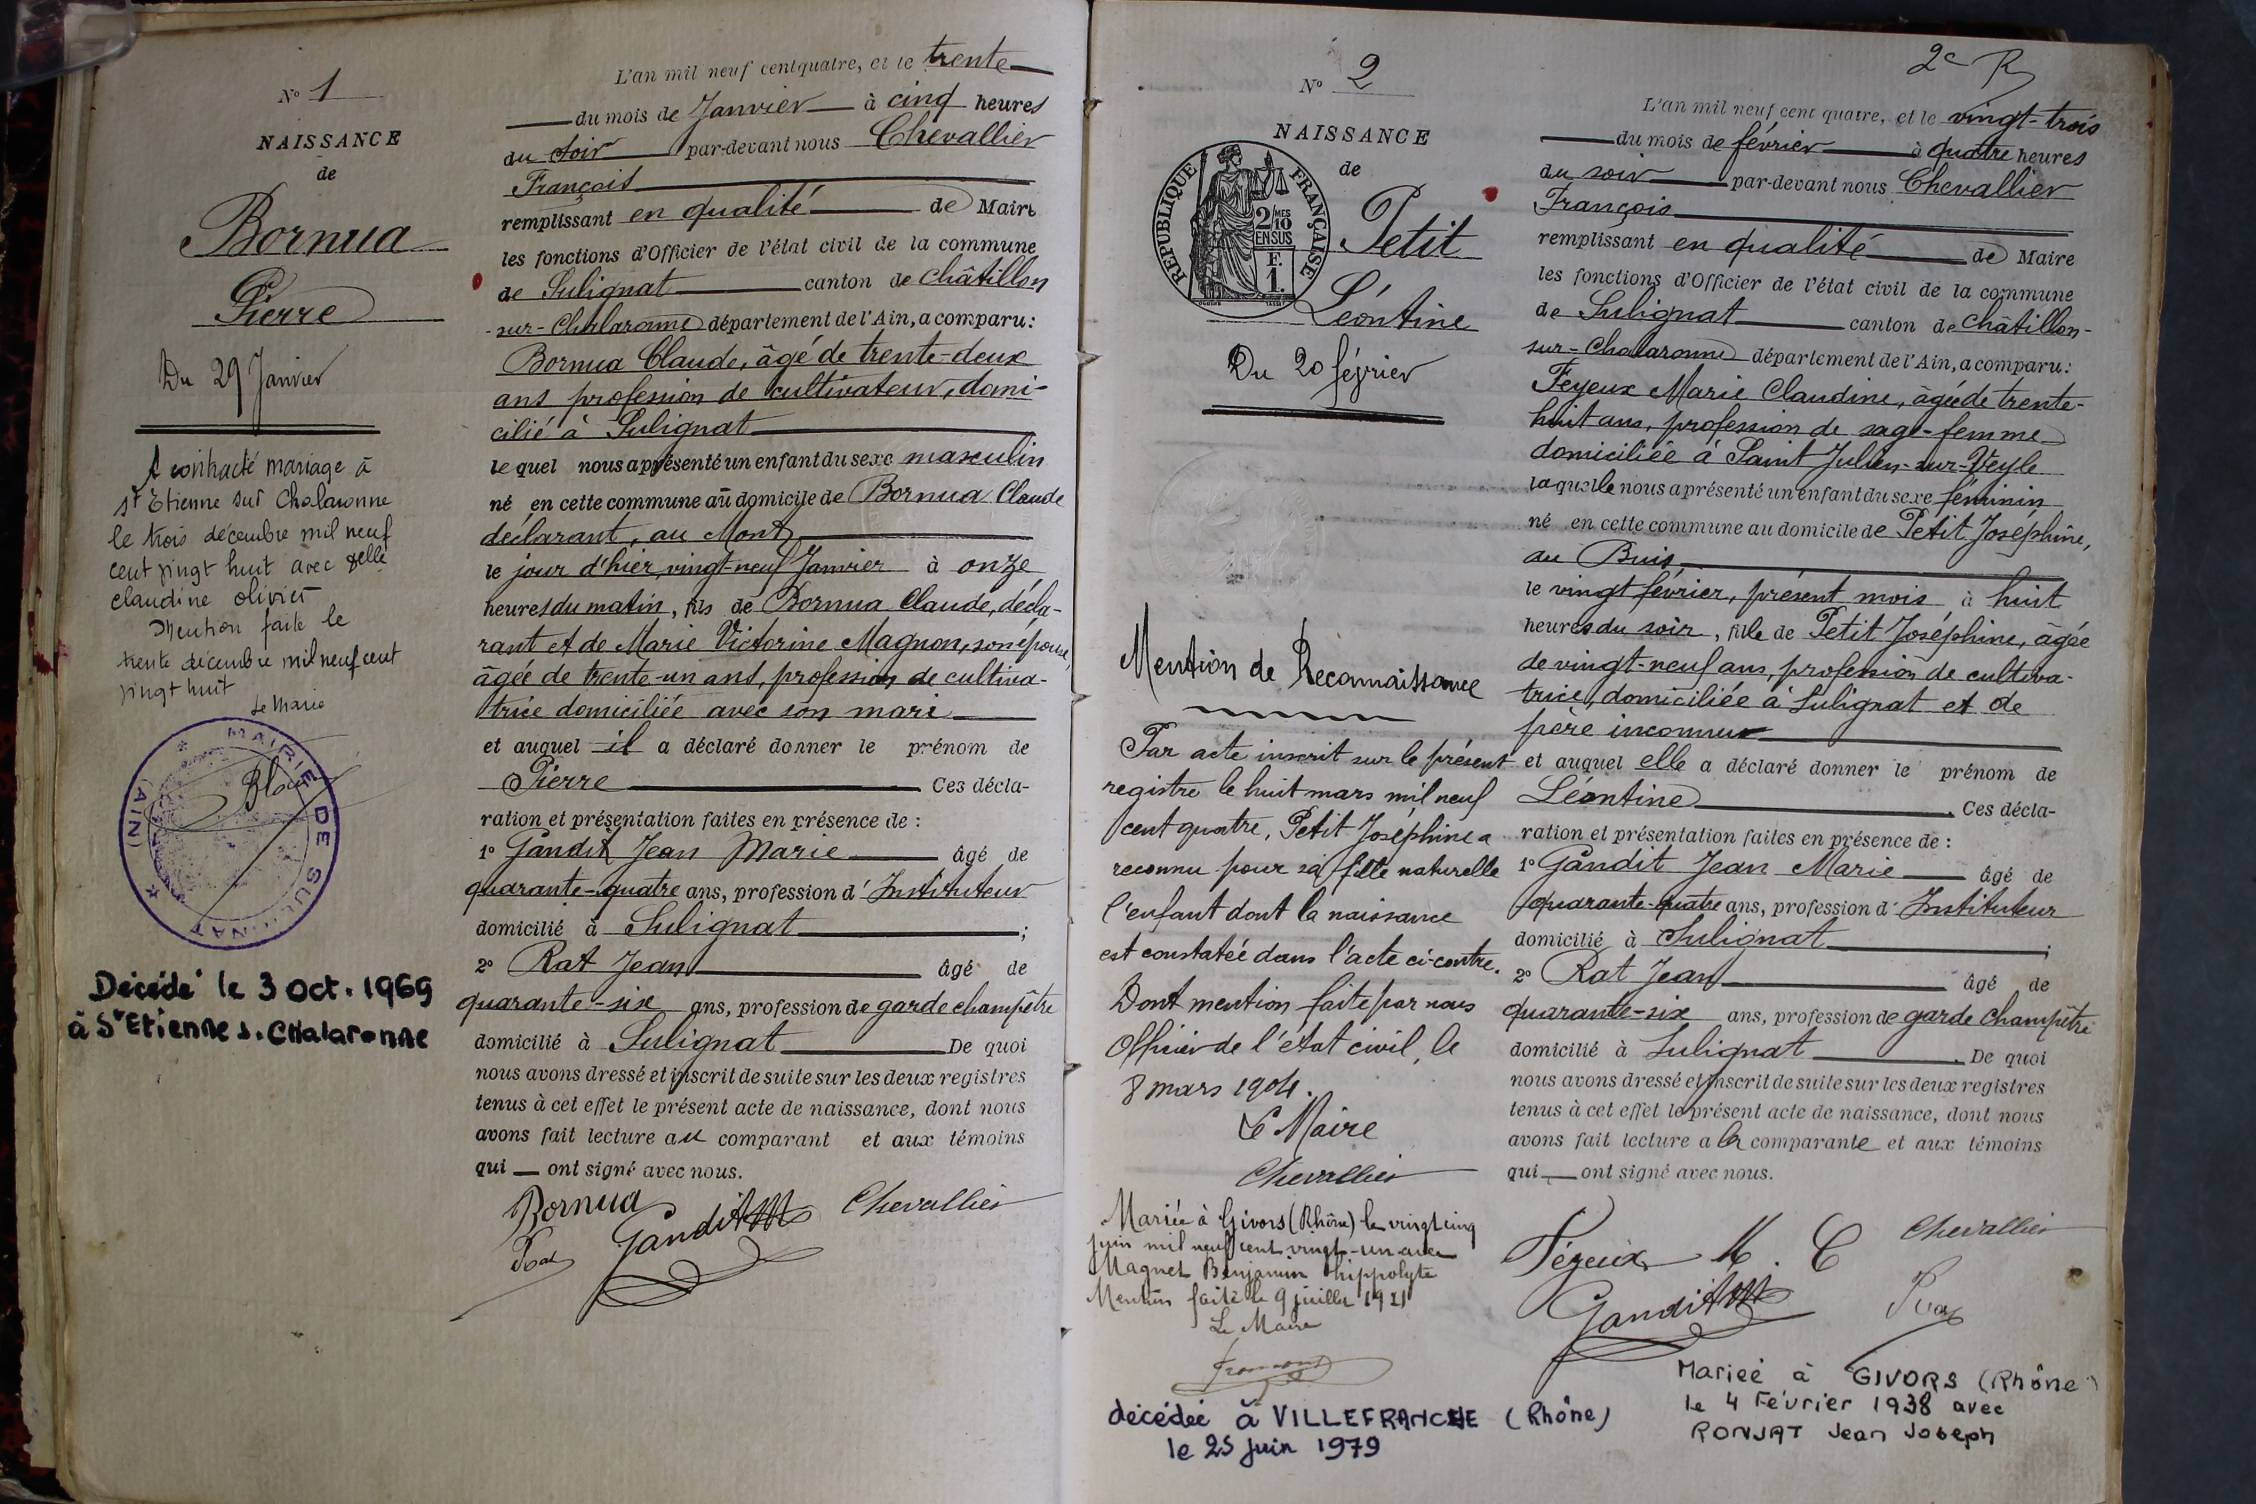 N° 1
NAISSANCE
de
Bornua
Pierre
Du 29 Janvier
A contracté mariage à
St Etienne sur Chalaronne
le trois décembre mil neuf
cent vingt huit avec
claudine olivier
Mention faite le
trente décembre mil neuf cent
vingt huit
Le Maire
MAIRIE DE SULIGNAT
(AIN)
Décédé le 3 Oct. 1969
à St Etienne s. Chalaronne
L'an mil neuf cent quatre, et le trente
du mois de Janvier à cinq heures
du soir par-devant nous Chevallier
François
remplissant en qualité de Maire
les fonctions d'Officier de l'état civil de la commune
de Sulignat canton de Châtillon
-sur-Chalaronne département de l'Ain, a comparu :
Bornua Claude, âgé de trente-deux
ans profession de cultivateur, domi-
cilié à Sulignat
lequel nous a présenté un enfant du sexe masculin
né en cette commune au domicile de Bornua Claude
déclarant, au Mont,
le jour d'hier, vingt-neuf Janvier à onze
heures du matin, fils de Bornua Claude, décla-
rant et de Marie Victorine Magnon, son épouse,
âgée de trente-un ans, profession de cultiva-
trice domiciliée avec son mari
et auquel il a déclaré donner le prénom de
Pierre Ces décla-
ration et présentation faites en présence de :
1° Gandit Jean Marie âgé de
quarante-quatre ans, profession d'Instituteur
domicilié à Sulignat ;
2° Rat Jean âgé de
quarante-six ans, profession de garde champêtre
domicilié à Sulignat De quoi
nous avons dressé et inscrit de suite sur les deux registres
tenus à cet effet le présent acte de naissance, dont nous
avons fait lecture au comparant et aux témoins
qui ont signé avec nous.
Bornua Gandit JM Chevallier
Rat
2e R
N° 2
NAISSANCE
de
RÉPUBLIQUE FRANÇAISE
2/10 MES
EN SUS
F.
1.
Petit
Léontine
Du 20 février
Mention de Reconnaissance
Par acte inscrit sur le présent
registre le huit mars mil neuf
cent quatre, Petit Joséphine a
reconnu pour sa fille naturelle
l'enfant dont la naissance
est constatée dans l'acte ci-contre.
Dont mention faite par nous
Officier de l'état civil, le
8 mars 1904.
Le Maire
Chevallier
Mariée à Givors (Rhône) le vingt cinq
juin mil neuf cent vingt-un avec
Magnet Benjamin hippolyte
Mention faite le 9 juillet 1921
Le Maire
décédée à VILLEFRANCHE (Rhône)
le 25 juin 1979
L'an mil neuf cent quatre, et le vingt-trois
du mois de février à quatre heures
du soir par-devant nous Chevallier
François
remplissant en qualité de Maire
les fonctions d'Officier de l'état civil de la commune
de Sulignat canton de Châtillon-
sur-Chalaronne département de l'Ain, a comparu :
Feyeux Marie Claudine, âgée de trente-
huit ans, profession de sage-femme
domiciliée à Saint Julien-sur-Veyle
laquelle nous a présenté un enfant du sexe féminin
né en cette commune au domicile de Petit Joséphine,
au Buis,
le vingt février, présent mois à huit
heures du soir, fille de Petit Joséphine, âgée
de vingt-neuf ans, profession de cultiva-
trice, domiciliée à Sulignat et de
père inconnu
et auquel elle a déclaré donner le prénom de
Léontine. Ces décla-
ration et présentation faites en présence de :
1° Gandit Jean Marie âgé de
quarante-quatre ans, profession d'Instituteur
domicilié à Sulignat ;
2° Rat Jean âgé de
quarante-six ans, profession de garde champêtre
domicilié à Sulignat. De quoi
nous avons dressé et inscrit de suite sur les deux registres
tenus à cet effet le présent acte de naissance, dont nous
avons fait lecture a la comparante et aux témoins
qui ont signé avec nous.
M. C Chevallier
Gandit JM Rat
Mariée à GIVORS (Rhône)
le 4 Février 1938 avec
RONJAT Jean Joseph